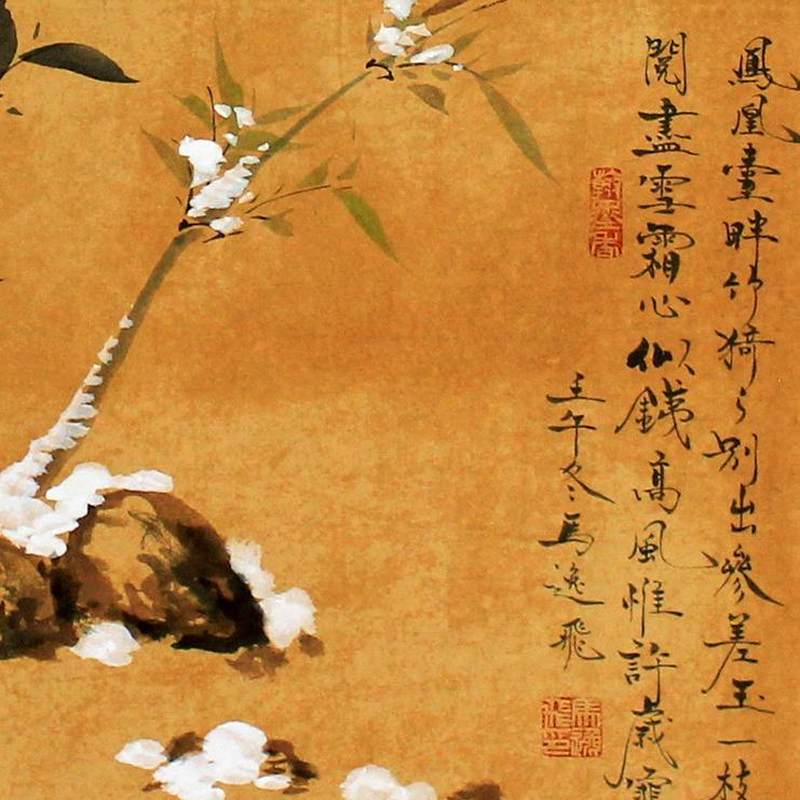 鳳凰臺畔竹猗々別出參差玉一枝
閱盡雪霜心似鐵高風惟許歲寒
壬午冬馬逸飛